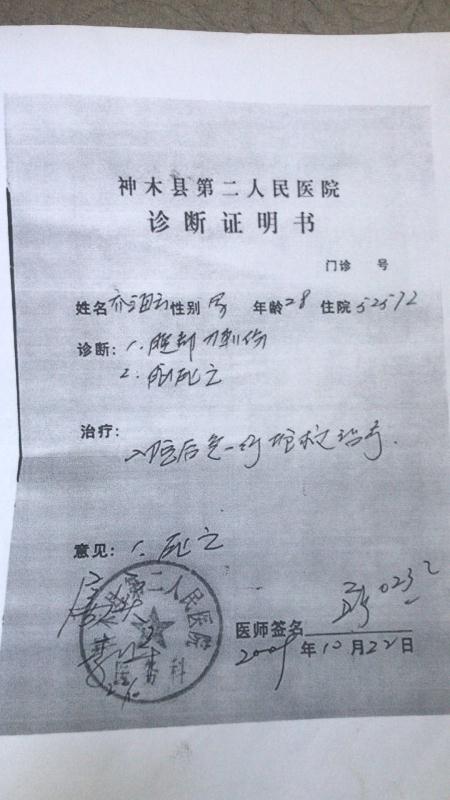 神木县第二人民医院
诊断证明书
门诊 号
姓名 性别 男 年龄28 住院52572
诊断：1. 腹部刀刺伤
2. 死亡
治疗：
入院后 抢救治疗.
意见：1. 死亡
第二人民医院
医务科
医师签名 0232
2009年10月22日